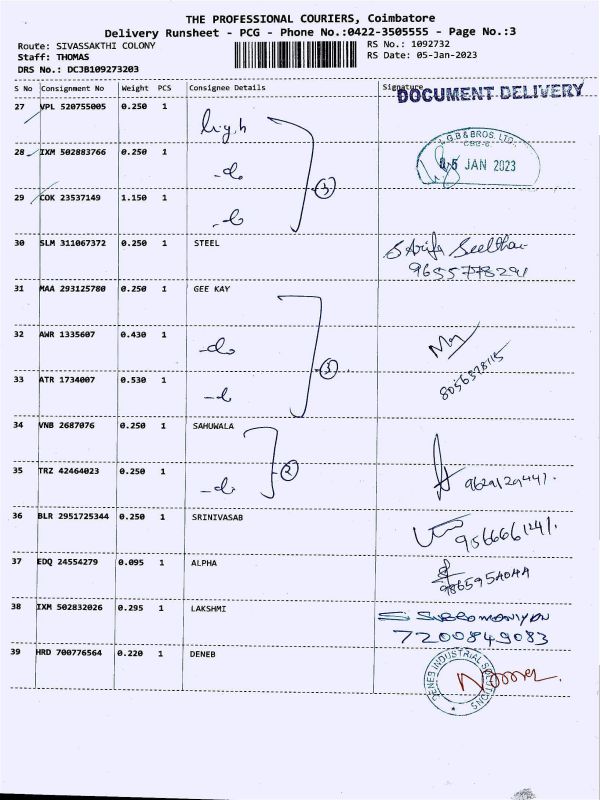 THE PROFESSIONAL COURIERS, Coimbatore
Delivery Runsheet - PCG - Phone No.:0422-3505555 - Page No.:3
Route: SIVASSAKTHI COLONY RS No.: 1092732
Staff: THOMAS RS Date: 05-Jan-2023
DRS No.: DCJB109273203
S No Consignment No Weight PCS Consignee Details Signature
DOCUMENT DELIVERY
27 VPL 520755005 0.250 1
28 IXM 502883766 0.250 1 -do
L.G.B & BROS. LTD.,
05 JAN 2023
3
29 COK 23537149 1.150 1
30 SLM 311067372 0.250 1 STEEL
9655778291
31 MAA 293125780 0.250 1 GEE KAY
32 AWR 1335607 0.430 1 -do
3
33 ATR 1734007 0.530 1
34 VNB 2687076 0.250 1 SAHUWALA
2
35 TRZ 42464023 0.250 1 -do
9629129441.
36 BLR 2951725344 0.250 1 SRINIVASAB
9566661241.
37 EDQ 24554279 0.095 1 ALPHA
38 IXM 502832026 0.295 1 LAKSHMI
7200849083
39 HRD 700776564 0.220 1 DENEB
DENEB INDUSTRIAL SOLUTIONS